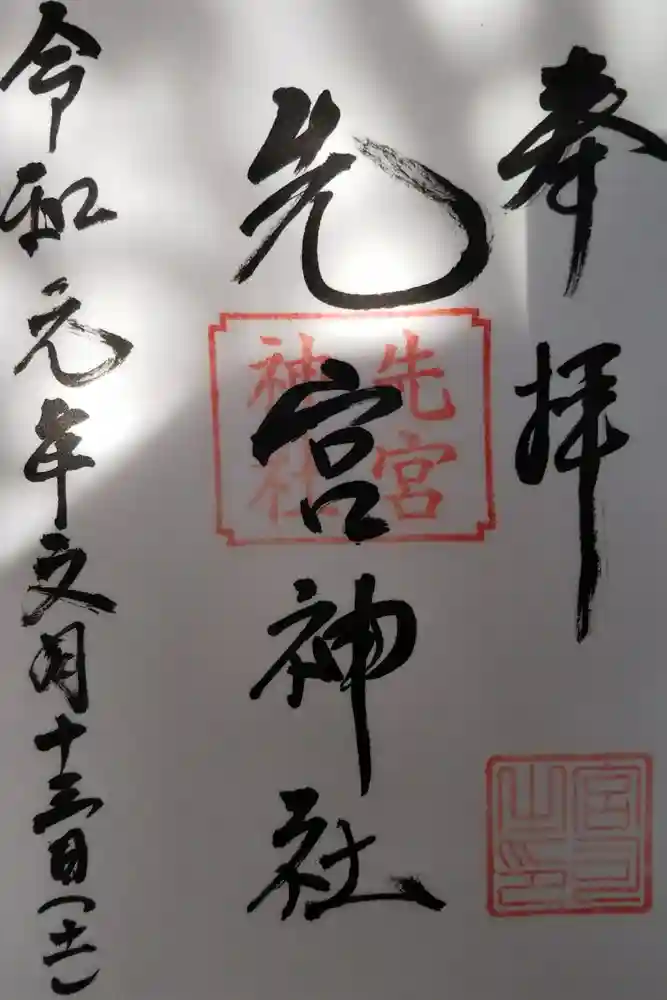 奉拝
先宮神社
先宮
神社
宮司
之印
令和元年文月十三日(土)